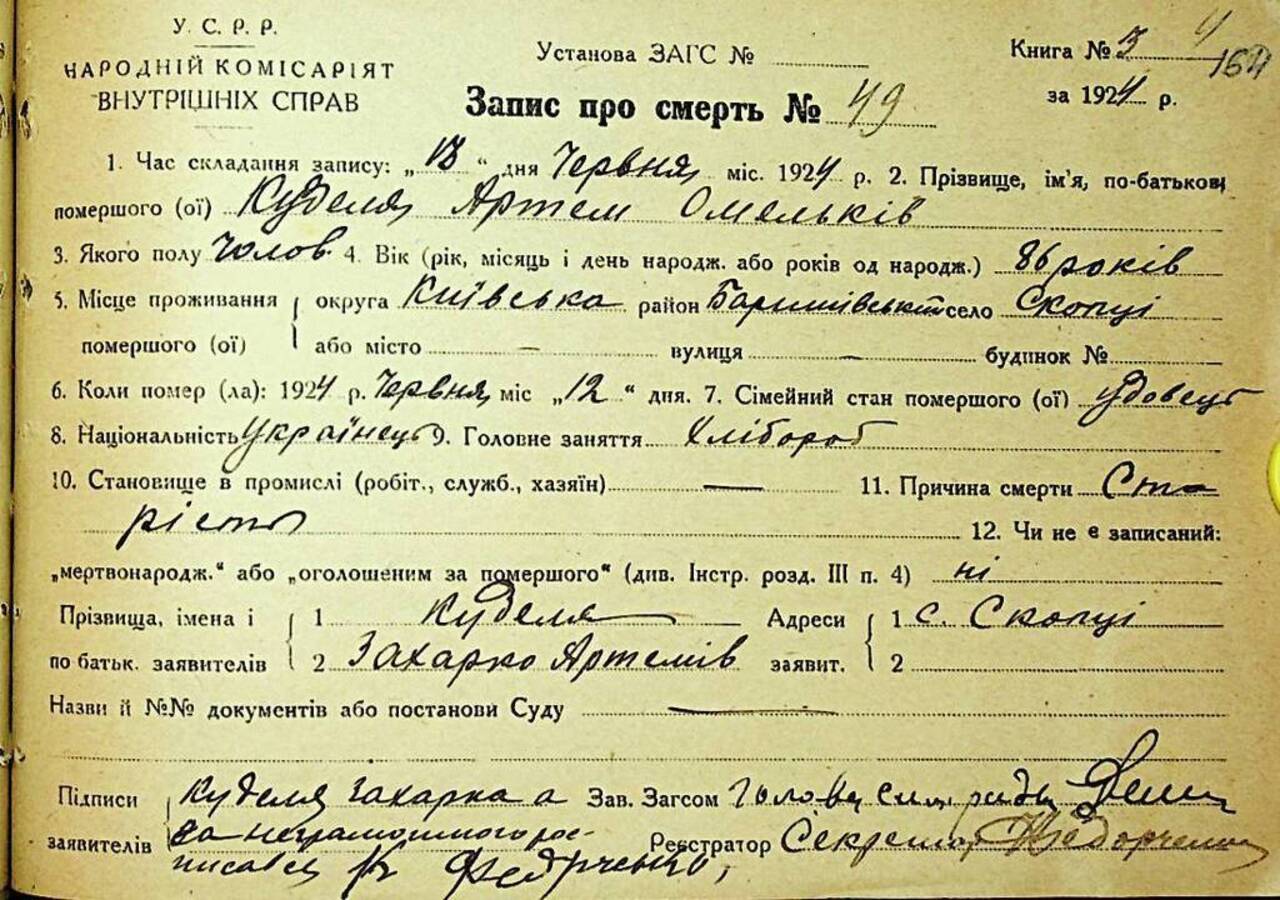 У. С. Р. Р.
НАРОДНІЙ КОМІСАРІЯТ
ВНУТРІШНІХ СПРАВ
Установа ЗАГС №
Книга № 3
164
за 1924 р.
Запис про смерть № 49
1. Час складання запису: „13“ дня Червня міс. 1924 р. 2. Прізвище, ім'я, по-батькові
помершого (ої) Куделя Артем Омельків
3. Якого полу Чолов. 4. Вік (рік, місяць і день народж. або років од народж.) 86 років
5. Місце проживання округа Київська район Баришівський село Скопці
помершого (ої) або місто — вулиця — будинок №
6. Коли помер (ла): 1924 р. Червня міс „12“ дня. 7. Сімейний стан помершого (ої) удовець
8. Національність Українець 9. Головне заняття Хлібороб
10. Становище в промислі (робіт., служб., хазяїн) — 11. Причина смерти Ста-
рість 12. Чи не є записаний:
„мертвонародж.“ або „оголошеним за помершого“ (див. Інстр. розд. III п. 4) ні
Прізвища, імена і 1 Куделя Адреси 1 с. Скопці
по батьк. заявителів 2 Захарко Артемів заявит. 2
Назви й №№ документів або постанови Суду —
Підписи Куделя Захарка а Зав. Загсом Голова сільради
заявителів за неграмотного рос- Реєстратор Секретар Федорченко
писавсь Федорченко